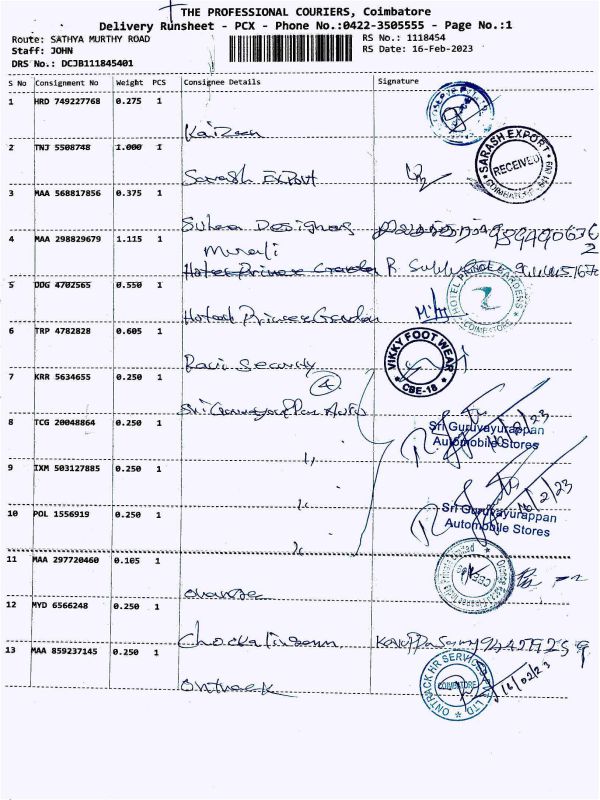 THE PROFESSIONAL COURIERS, Coimbatore
Delivery Runsheet - PCX - Phone No.:0422-3505555 - Page No.:1
Route: SATHYA MURTHY ROAD
RS No.: 1118454
Staff: JOHN
RS Date: 16-Feb-2023
DRS No.: DCJB111845401
S No Consignment No Weight PCS Consignee Details Signature
1 HRD 749227768 0.275 1
Kaizeen
2 TNJ 5508748 1.000 1
SARASH EXPORT
RECEIVED
COIMBATORE
Sarash Export
3 MAA 568817856 0.375 1
Suhaa Designers
4 MAA 298829679 1.115 1
Murali
Hotel Prince Garden R.
5 DDG 4702565 0.550 1
HOTEL PRINCE GARDENS
COIMBATORE
Hotel Prince Garden
6 TRP 4782828 0.605 1
VIKKY FOOT WEAR
CBE-18
Ravi Security
7 KRR 5634655 0.250 1
4
8 TCG 20048864 0.250 1
Sri Guruvayurappan
Automobile Stores
9 IXM 503127885 0.250 1
16/2/23
10 POL 1556919 0.250 1
Sri Guruvayurappan
Automobile Stores
11 MAA 297720460 0.105 1
Orange
12 MYD 6566248 0.250 1
Chockalingam
13 MAA 859237145 0.250 1
ONTRACK HR SERVICES PVT LTD
COIMBATORE
16/02/23
Ontrack